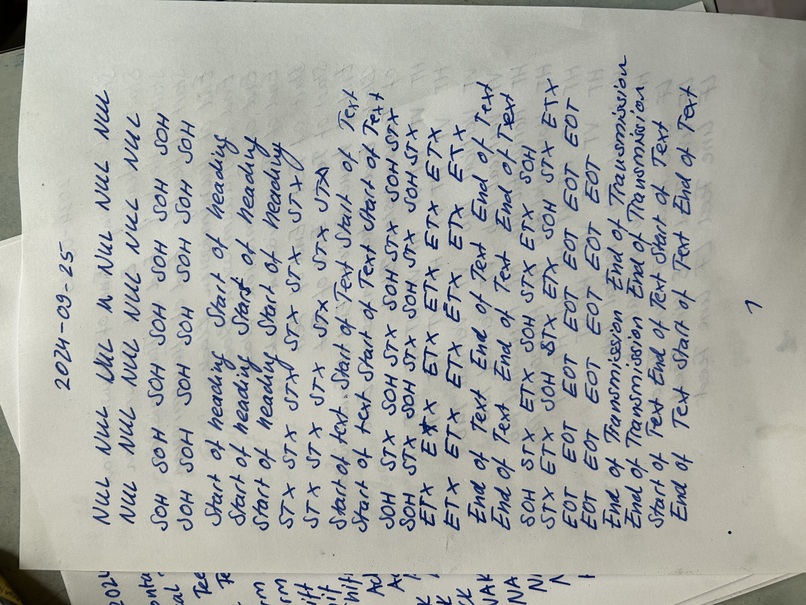 2024-09-25
NUL NUL NUL N NUL NUL NUL
NUL NUL NUL NUL NUL NUL
SOH SOH SOH SOH SOH SOH SOH
SOH SOH SOH SOH SOH SOH SOH
Start of heading Start of heading
Start of heading Start of heading
Start of heading Start of heading
STX STX STX STX STX STX
STX STX STX STX STX STX
Start of text Start of Text Start of Text
Start of text Start of Text Start of Text
SOH STX SOH STX SOH STX SOH STX
SOH STX SOH STX SOH STX SOH STX
ETX ETX ETX ETX ETX ETX
ETX ETX ETX ETX ETX ETX
End of Text End of Text End of Text
End of Text End of Text End of Text
SOH STX ETX SOH STX ETX SOH
STX ETX SOH STX ETX SOH STX ETX
EOT EOT EOT EOT EOT EOT EOT
EOT EOT EOT EOT EOT EOT
End of Transmission End of Transmission
End of Transmission End of Transmission
Start of Text End of Text Start of Text
End of Text Start of Text End of Text
1